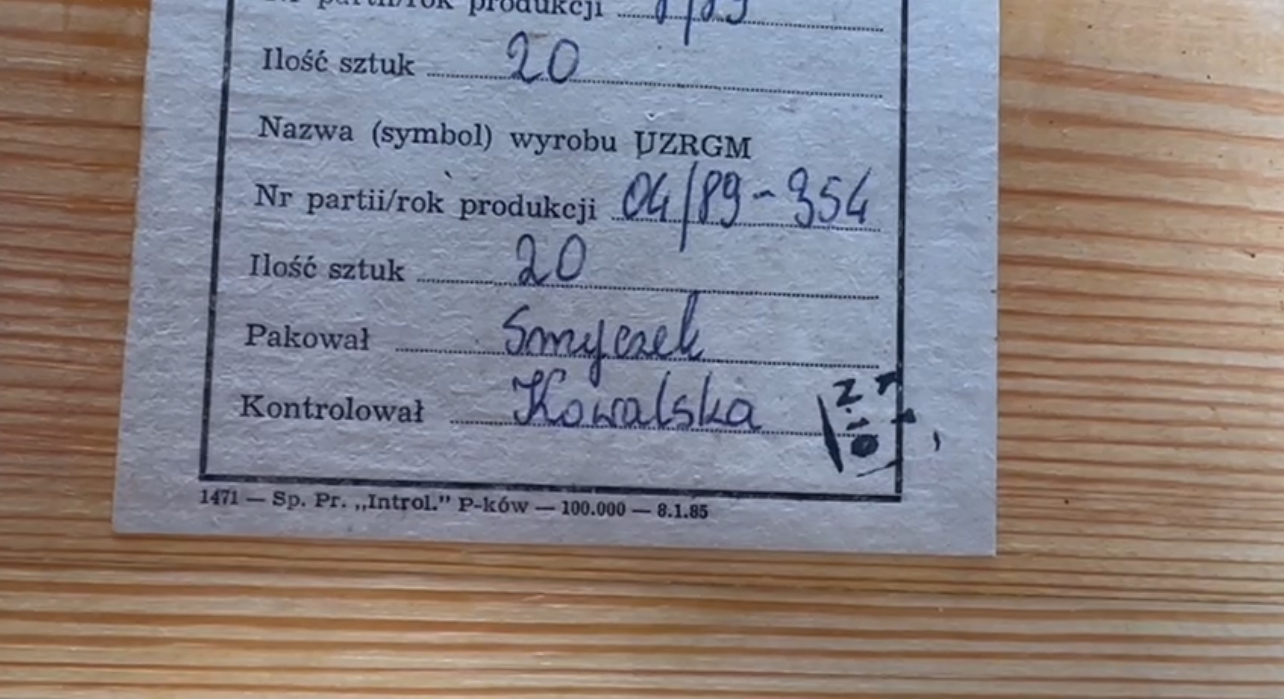 partii/rok produkcji
Ilość sztuk 20
Nazwa (symbol) wyrobu UZRGM
Nr partii/rok produkcji 04/89-354
Ilość sztuk 20
Pakował Smyczek
Kontrolował Kowalska
1471 — Sp. Pr. „Introl.” P-ków — 100.000 — 8.1.85